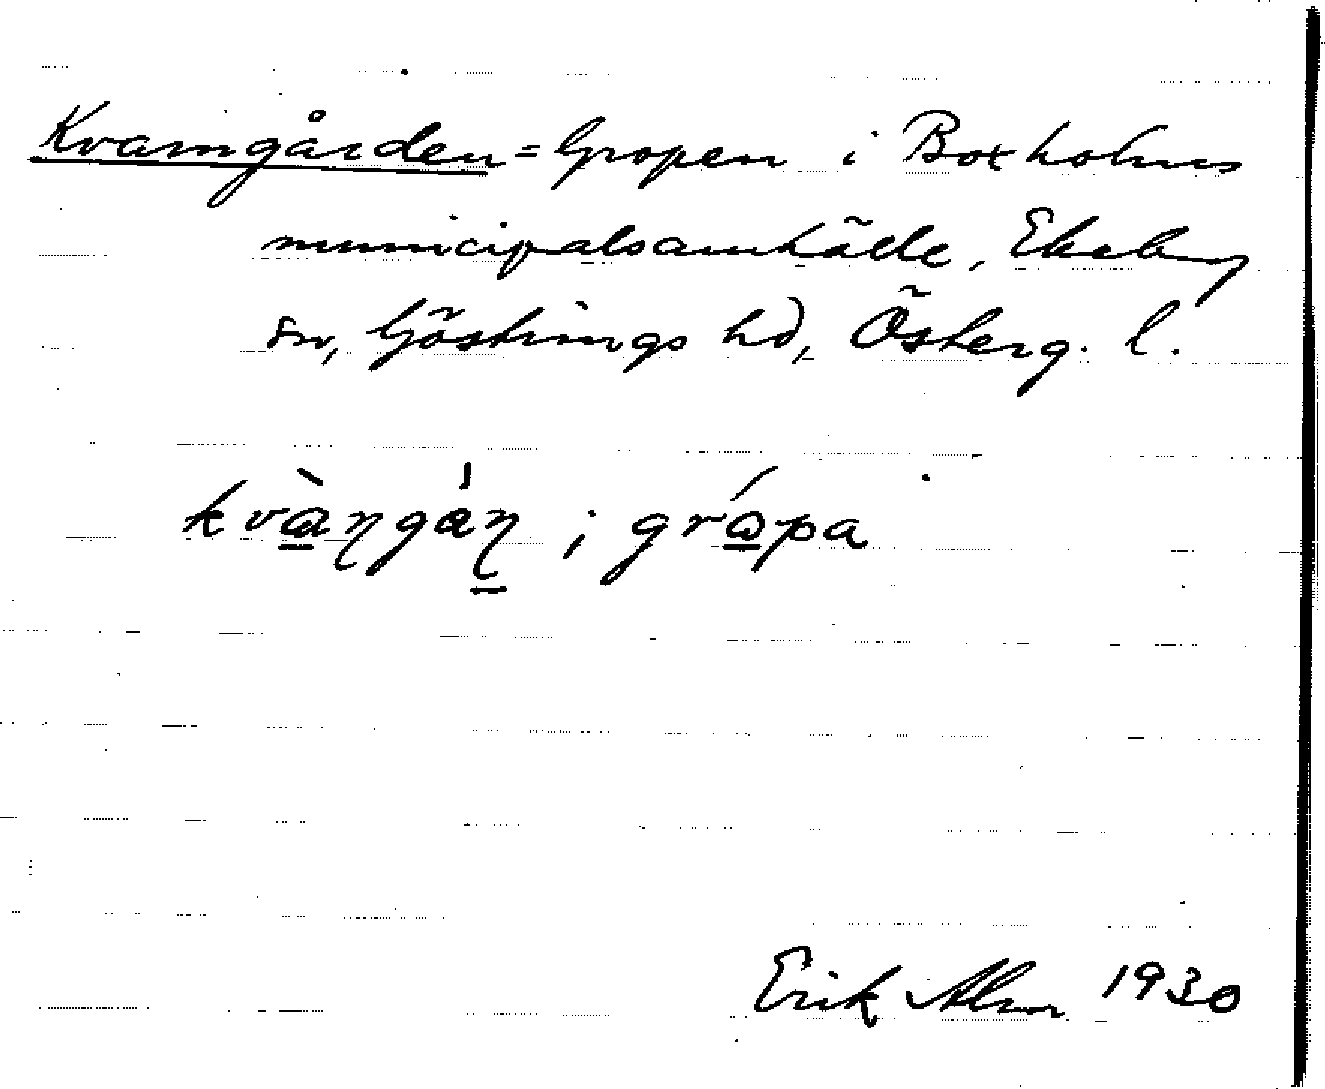 Kvarngården = Gropen i Boxholms
municipalsamhälle, Ekeby
sn, Göstrings hd, Österg. l.
kvàŋgán ; grápa
Erik Alm 1930